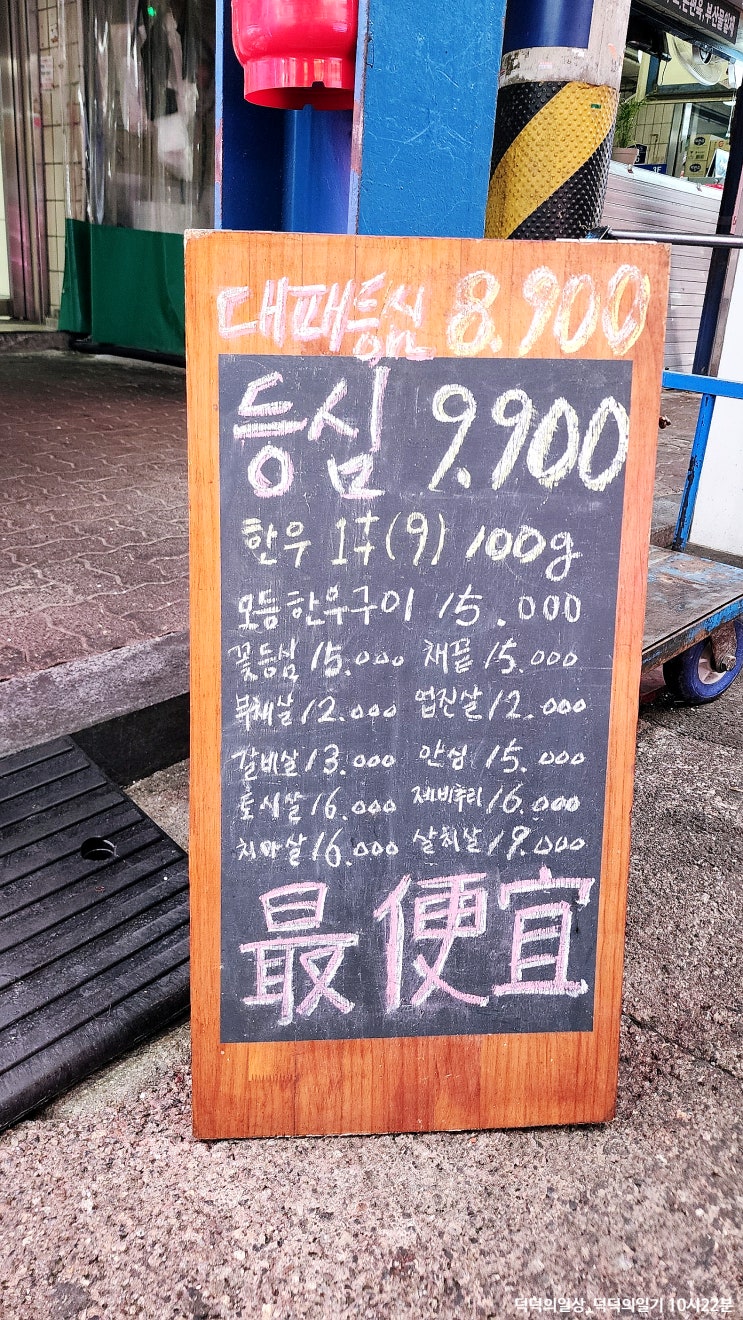 대패등심 8.900
등심 9.900
한우 1++(9) 100g
모듬한우구이 15.000
꽃등심 15.000 채끝 15.000
부채살 12.000 업진살 12.000
갈비살 13.000 안심 15.000
토시살 16.000 제비추리 16.000
치마살 16.000 살치살 19.000
最便宜
덕덕의일상, 덕덕의일기 10시22분